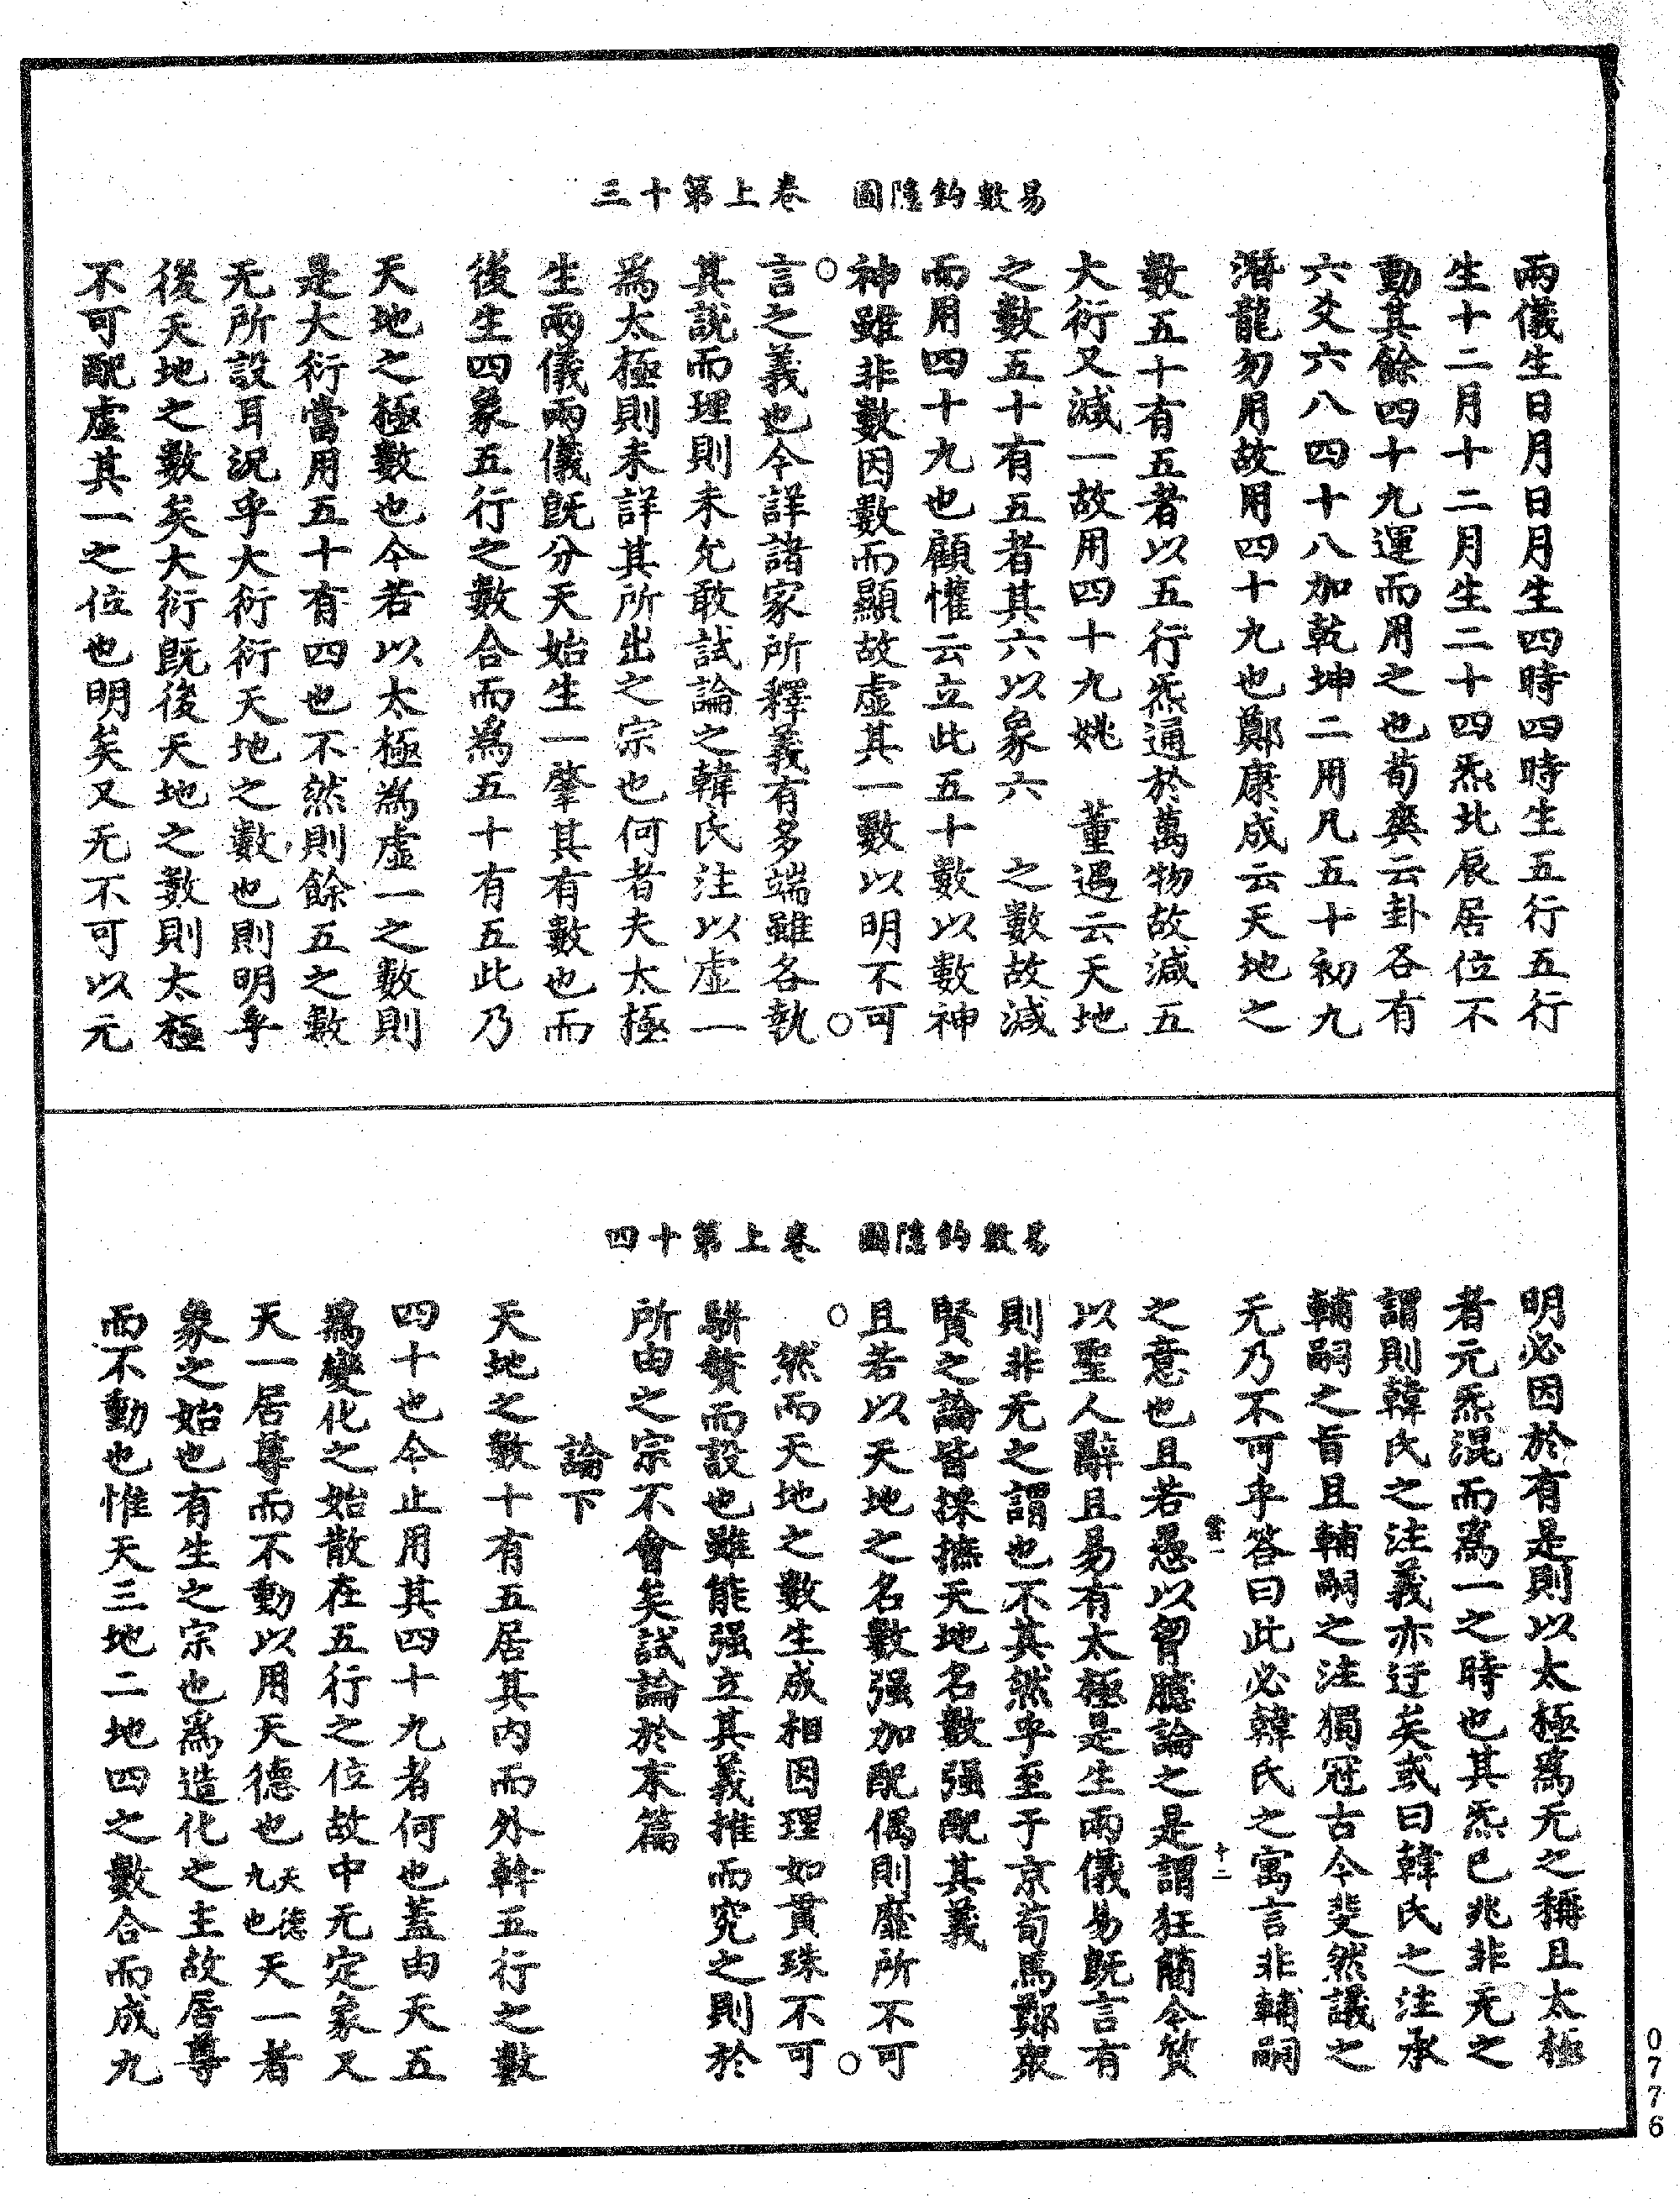 易數鈎隱圖　卷上第十三
兩儀生日月日月生四時四時生五行五行
生十二月十二月生二十四炁北辰居位不
動其餘四十九運而用之也荀爽云卦各有
六爻六八四十八加乾坤二用凡五十初九
潛龍勿用故用四十九也鄭康成云天地之
數五十有五者以五行炁通於萬物故減五
大衍又減一故用四十九姚　董遇云天地
之數五十有五者其六以象六　之數故減
而用四十九也顧懽云立此五十數以數神
神雖非數因數而顯故虛其一數以明不可
言之義也今詳諸家所釋義有多端雖各執
其說而理則未允敢試論之韓氏注以虛一
為太極則未詳其所出之宗也何者夫太極
生兩儀兩儀既分天始生一肇其有數也而
後生四象五行之數合而為五十有五此乃
天地之極數也今若以太極為虛一之數則
是大衍當用五十有四也不然則餘五之數
无所設耳況乎大衍衍天地之數也則明乎
後天地之數矣大衍既後天地之數則太極
不可配虛其一之位也明矣又无不可以元
易數鈎隱圖　卷上第十四
明必因於有是則以太極為无之稱且太極
者元炁混而為一之時也其炁已兆非无之
謂則韓氏之注義亦迂矣或曰韓氏之注承
輔嗣之旨且輔嗣之注獨冠古今斐然議之
无乃不可乎答曰此必韓氏之寓言非輔嗣
雲一　十二
之意也且若愚以胷臆論之是謂狂簡今質
以聖人辭且易有太極是生兩儀易既言有
則非无之謂也不其然乎至于京荀馬鄭衆
賢之論皆採摭天地名數强配其義
且若以天地之名數强加配偶則靡所不可
然而天地之數生成相因理如貫珠不可
駢贅而設也雖能强立其義推而究之則於
所由之宗不會矣試論於本篇
論下
天地之數十有五居其內而外幹五行之數
四十也今止用其四十九者何也蓋由天五
為變化之始散在五行之位故中无定象又
天一居尊而不動以用天德也天德九也天一者
象之始也有生之宗也為造化之主故居尊
而不動也惟天三地二地四之數合而成九
0776